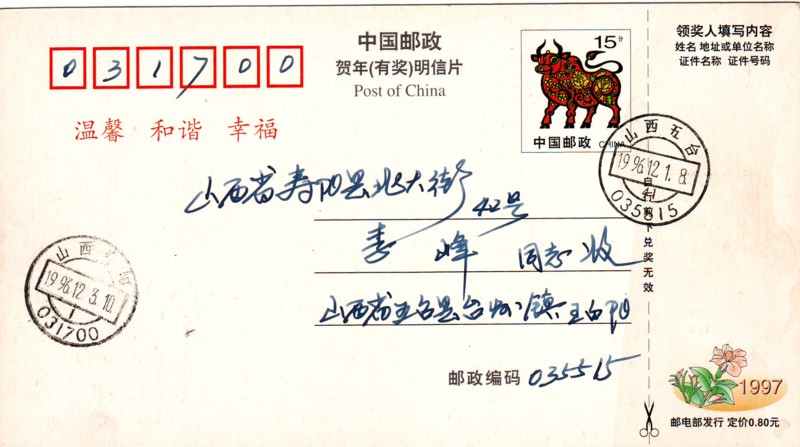 031700
中国邮政
贺年(有奖)明信片
Post of China
温馨 和谐 幸福
15分
中国邮政 CHINA
领奖人填写内容
姓名 地址或单位名称
证件名称 证件号码
山西五台
1996.12.1.8.
035515
自行剪下兑奖无效
山西省寿阳县北大街
42号
李峰 同志收
山西省五台县台怀镇王白阳
邮政编码 035515
山西寿阳
1996.12.3.10.
1
031700
1997
邮电部发行 定价0.80元